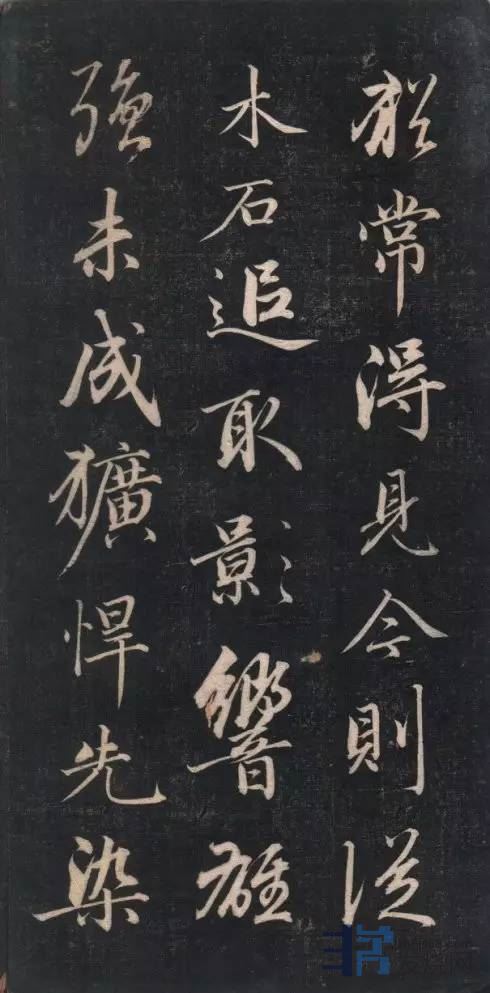 常得見今則從
木石追取影響雄
強未成獷悍先染